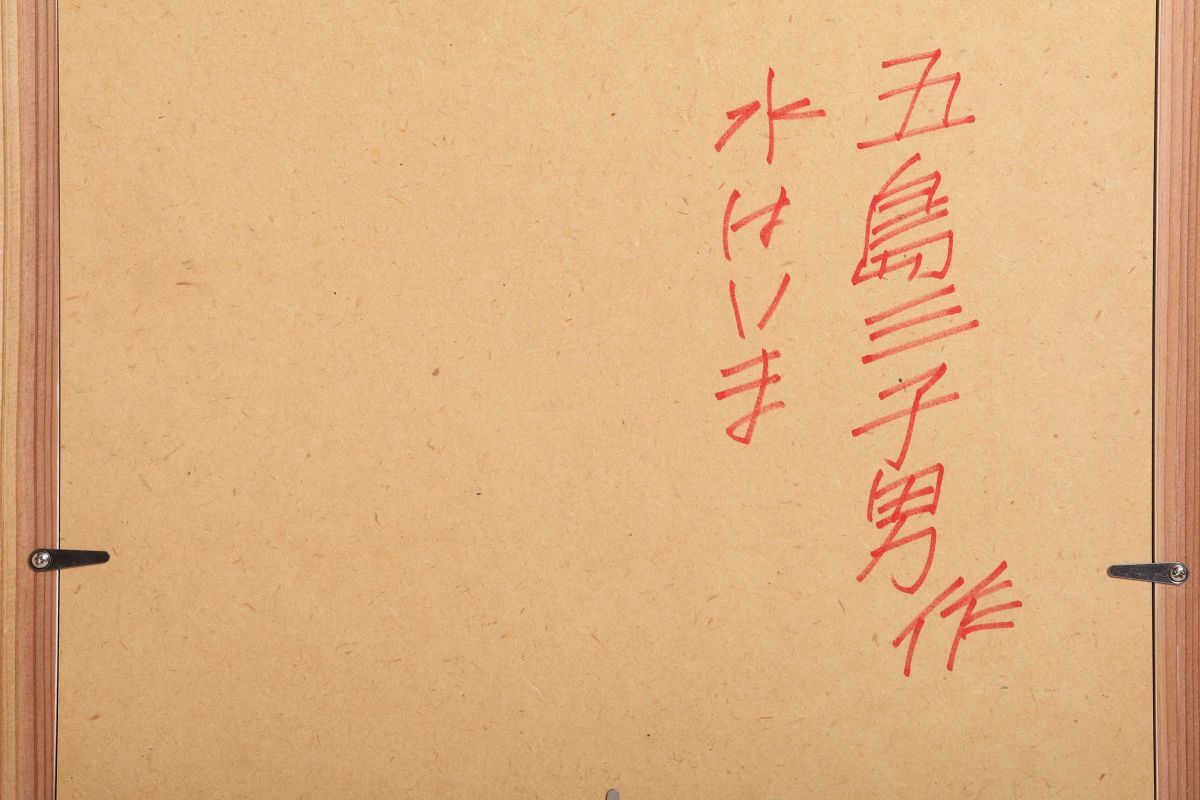 五島三子男作
水はいま